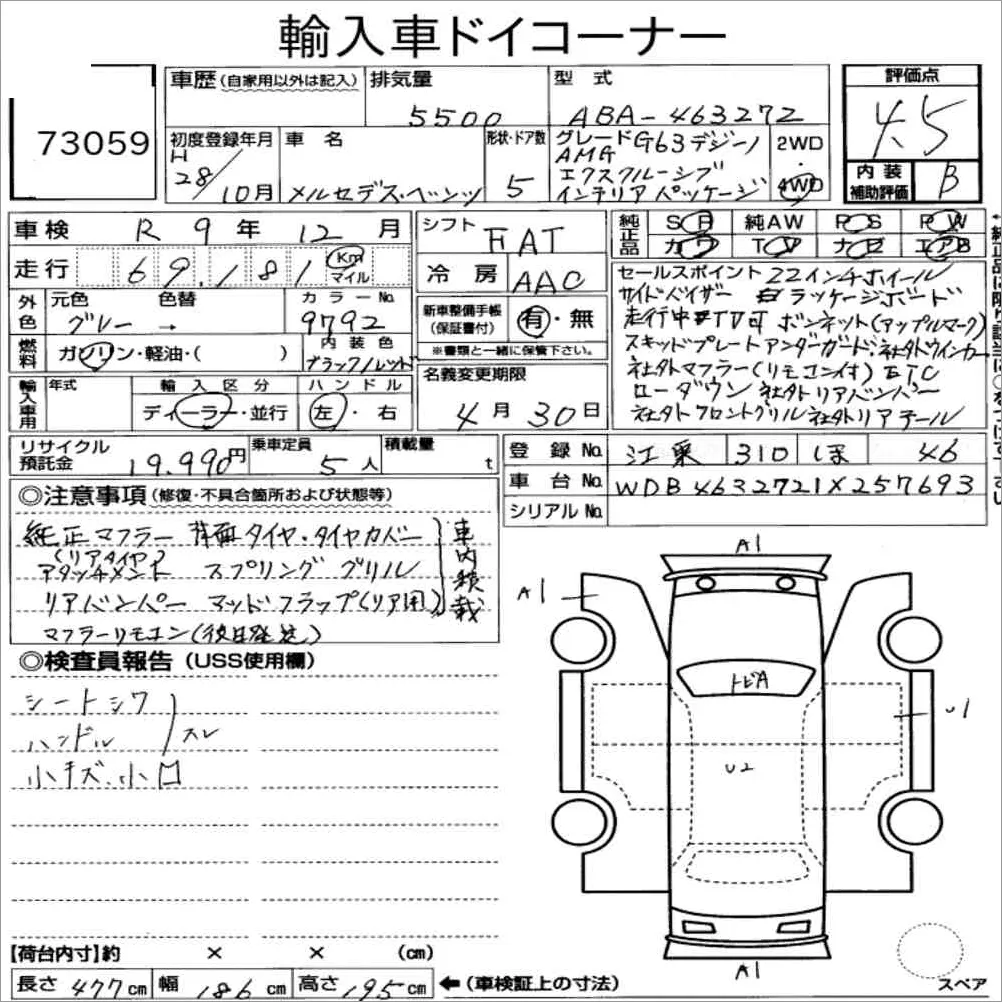 輸入車ドイコーナー
73059
車歴(自家用以外は記入)
排気量
5500
型式
ABA-463272
評価点
4.5
初度登録年月
H
28/10月
車名
メルセデス・ベンツ
形状・ドア数
5
グレード G63デジーノ
AMG
エクスクルーシブ
インテリア パッケージ
2WD
・
4WD
内装
補助評価
B
車検 R 9年 12月
シフト FAT
純正品
SR 純AW PS PW
カワ TV ナビ エアB
走行 69,181 Km
マイル
冷房 AAC
セールスポイント 22インチホイール
サイドバイザー ラッゲージボード
走行中TV可 ボンネット(アップルマーク)
スキッドプレート アンダーガード・社外ウインカー
社外マフラー(リモコン付) ETC
ローダウン 社外リアバンパー
社外フロントグリル 社外リアテール
外色
元色 色替
グレー →
カラーNo
9792
新車整備手帳
(保証書付)
有・無
※書類と一緒に保管下さい。
燃料
ガソリン・軽油・( )
内装色
ブラック/レッド
輸入車用
年式
輸入区分
ディーラー・並行
ハンドル
左・右
名義変更期限
4月30日
リサイクル
預託金 19,990円
乗車定員
5人
積載量
t
登録No. 310 ほ 46
車台No. WDB4632721X257693
シリアルNo.
◎注意事項(修復・不具合箇所および状態等)
純正マフラー 背面タイヤ・タイヤカバー
(リアタイヤ)
アタッチメント スプリング グリル
リアバンパー マッドフラップ(リア用)
車内積載
マフラーリモコン(後日発送)
◎検査員報告(USS使用欄)
シートシワ
ハンドル
スレ
小キズ、小凹
A1
A1
トビA
U1
U2
A1
【荷台内寸】約 × × (cm)
長さ 477cm 幅 186cm 高さ 195cm ←(車検証上の寸法)
スペア